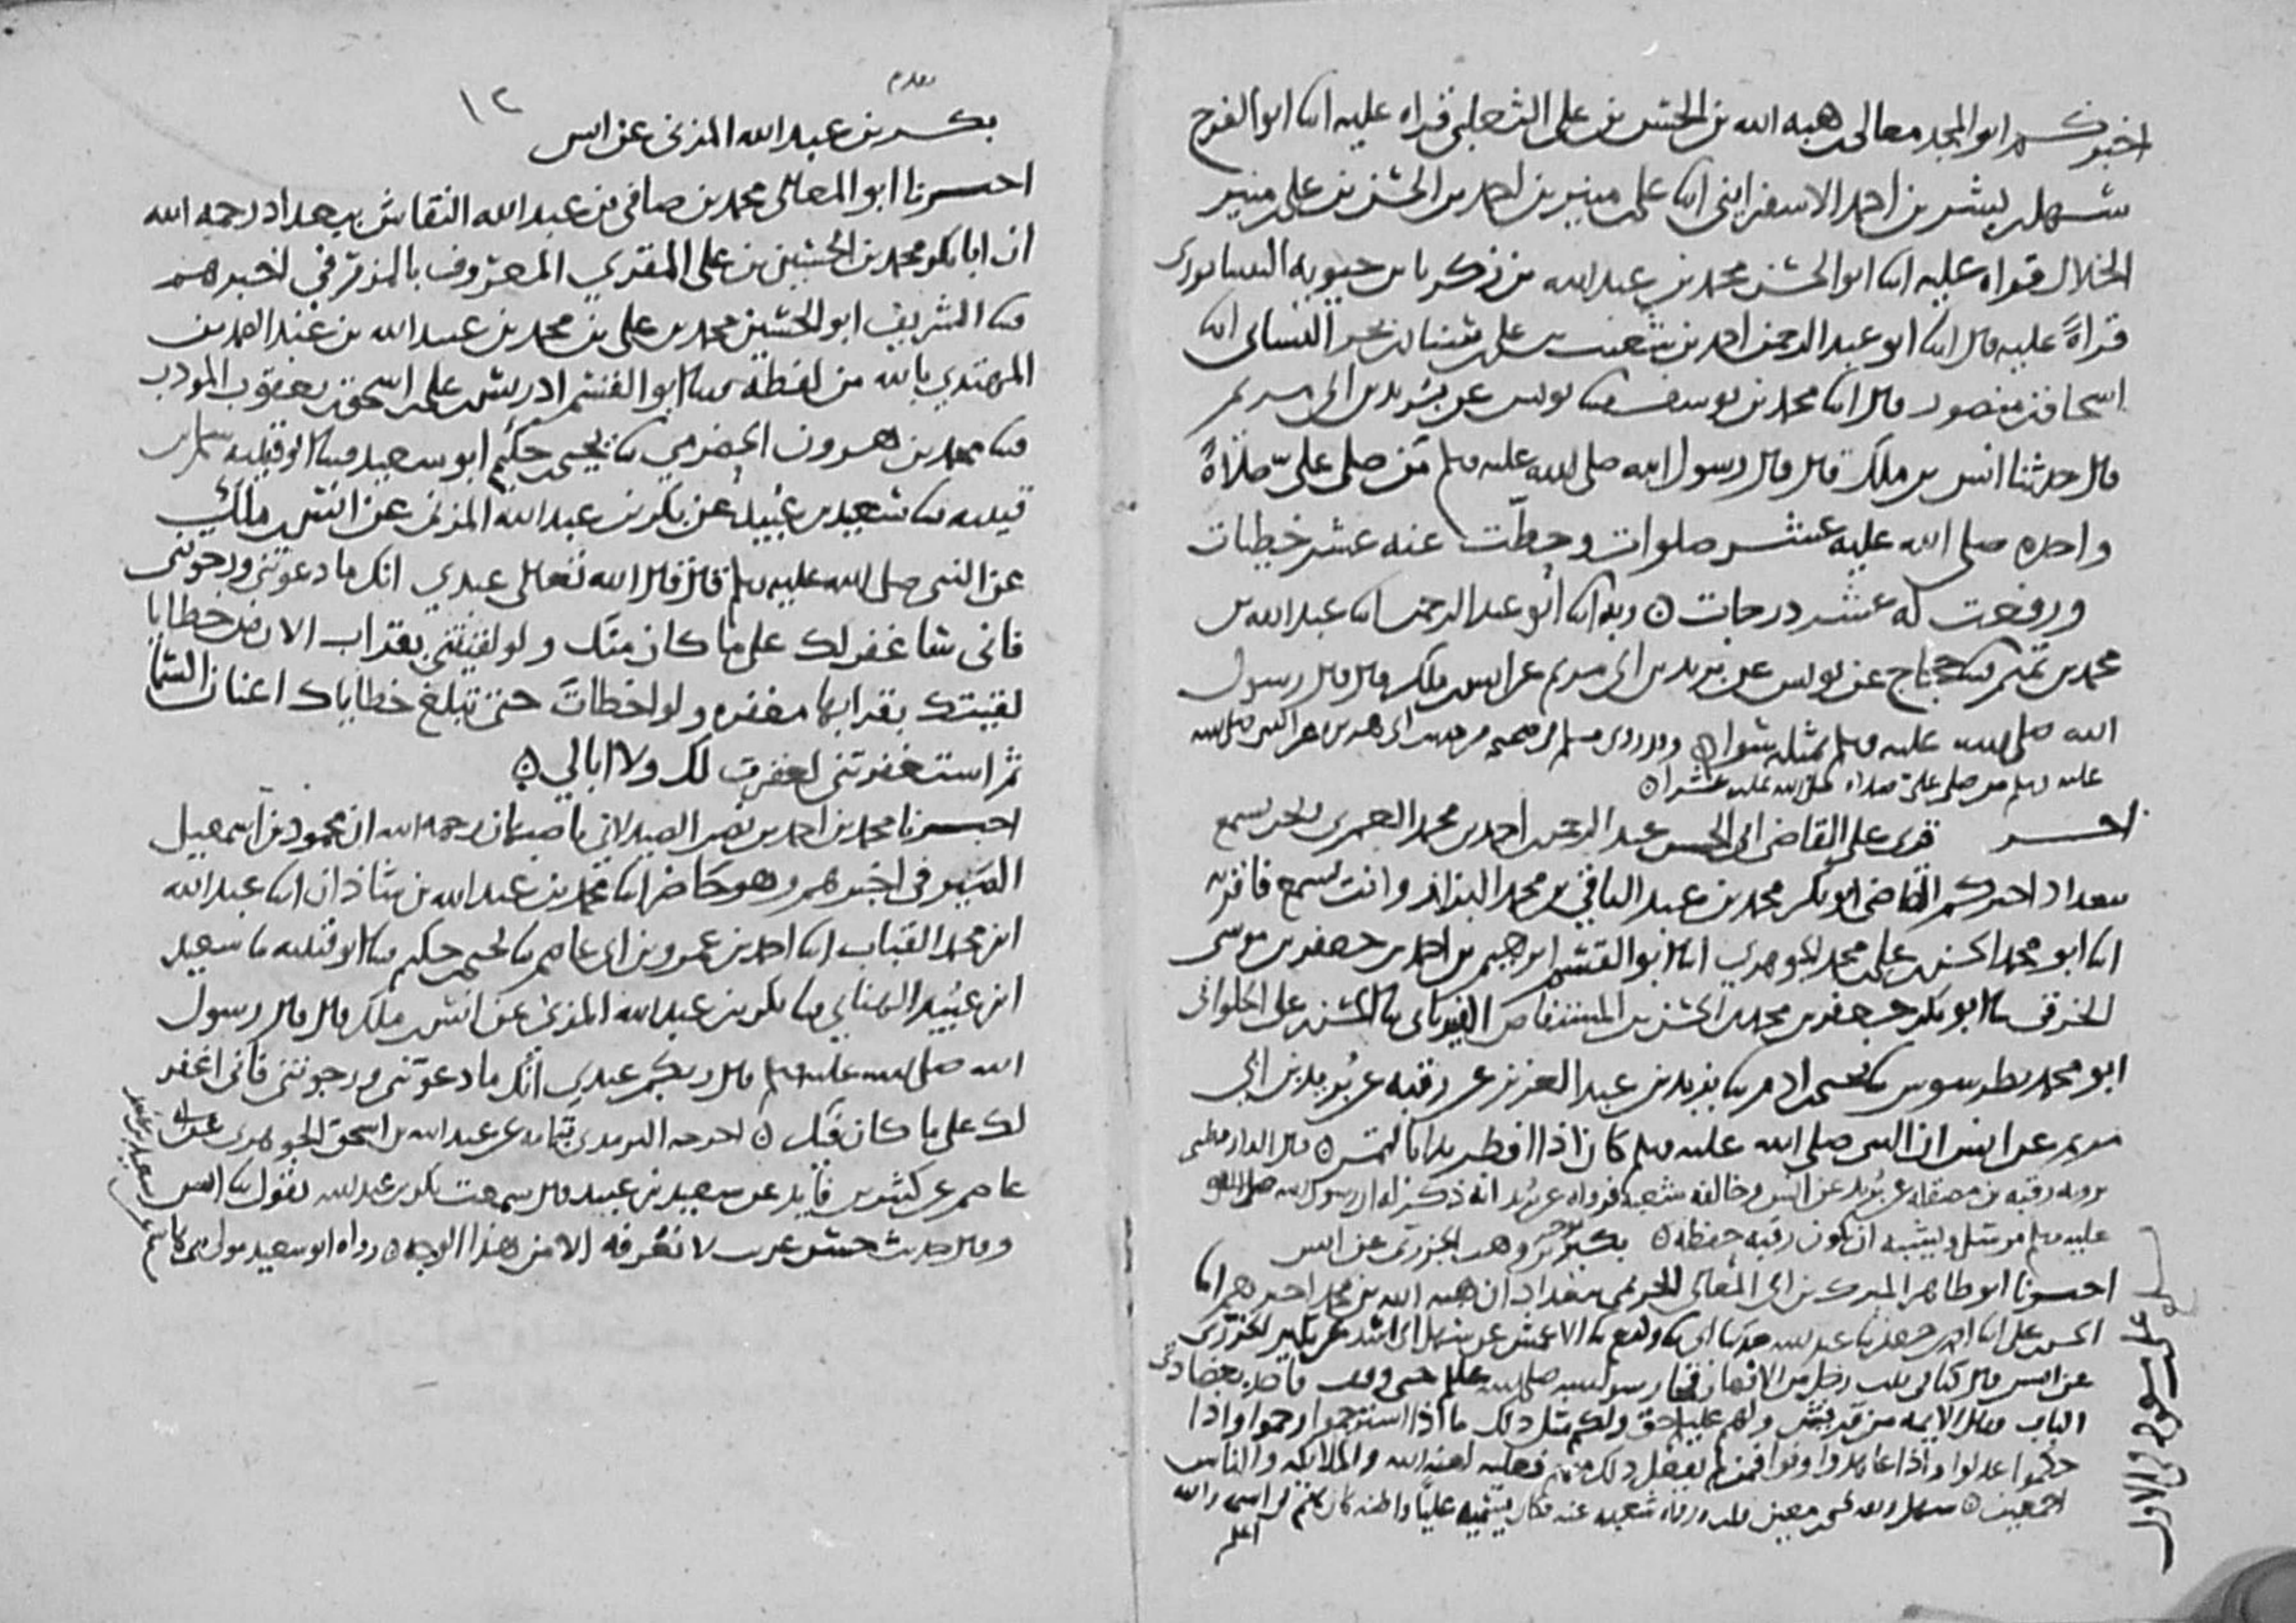 اخبركم ابو المجد معالي هبه الله بن الحسن بن علي الثعلبي قراه عليه انا ابو الفرج
سهل بشر بن احمد الاسفرايني انا علي منير بن احمد بن الحسن بن علي منير
الخلال قراه عليه انا ابو الحسن محمد بن عبد الله بن زكريا بن حيويه النيسابوري
قراةً عليه قال انا ابو عبد الرحمن احمد بن شعيب بن علي سنان بن بحر النسائي انا
اسحاق بن منصور قال انا محمد بن يوسف ثنا يونس عن بريد بن ابي مريم
قال حدثنا انس بن ملك قال قال رسول الله صلى الله عليه وسلم من صلى عليّ صلاةً
واحده صلى الله عليه عشر صلوات وحطّت عنه عشر خطيات
ورفعت له عشر درجات ه وبه انا ابو عبد الرحمن انا عبد الله بن
محمد بن تميم ثنا حجاج عن يونس عن بريد بن ابي مريم عن انس بن ملك قال قال رسول
الله صلى الله عليه وسلم بمثله سوا ه وقد روى مسلم في صحيحه من حديث ابي هريره عن النبي صلى الله
عليه وسلم من صلى عليّ صلاه صلى الله عليه عشرا ه
اخبر قرى على القاضي ابي الحسن عبد الرحمن احمد بن محمد العمري ونحن نسمع
ببغداد اخبركم القاضي ابو بكر محمد بن عبد الباقي بن محمد البزاز وانت تسمع فاقر به
انا ابو محمد الحسن بن علي محمد الجوهري انا ابو القسم ابرهيم بن احمد بن جعفر بن موسى
الخرقي ثنا ابو بكر جعفر بن محمد بن الحسن بن المستفاض الفريابي ثنا الحسن بن علي الحلواني
ابو محمد بطرسوس ثنا يحيى ادم ثنا يزيد بن عبد العزيز عن رقبه عن بُريد بن ابي
مريم عن انس ان النبي صلى الله عليه وسلم كان اذا افطر بدا بالتمر ه قال الدارقطني
يرويه رقبه بن مصقله عن بُريد عن انس وخالفه شعبه فرواه عن بُريد انه ذكر له ان رسول الله صلى الله
عليه وسلم مرسل ويشبه ان يكون رقبه حفظه ه بكير بن وهب الجزري عن انس
اخبرنا ابو طاهر المبرك بن ابي المعالي الحريمي ببغداد ان هبه الله بن محمد اخبرهم انا
الحسن بن علي انا احمد بن جعفر ثنا عبد الله حدثنا ابي ثنا وكيع ثنا الاعمش عن سهل ابي اسد عن بكير الجزري
عن انس قال كنا في بيت رجل من الانصار فجا رسول الله صلى الله عليه وسلم حتى وقف فاخذ بعضادتي
الباب فقال الايمه من قريش ولهم عليكم حق ولكم مثل ذلك ما اذا استرحموا رحموا واذا
حكموا عدلوا واذا عاهدوا وفوا فمن لم يفعل ذلك منهم فعليه لعنة الله والملائكه والناس
اجمعين ه سهل وثقه يحيى معين وقد رواه شعبه عنه فكان يسميه عليّا والله
اعلم
بكر بن عبد الله المزني عن انس
١٢
اخبرنا ابو المعالي محمد بن صافي بن عبد الله النقاش ببغداد رحمه الله
ان ابا بكر محمد بن الحسين بن علي المقري المعروف بالمزرفي اخبرهم
ثنا الشريف ابو الحسين محمد بن علي بن محمد بن عبيد الله بن عبد الصمد بن
المهتدي بالله من لفظه ثنا ابو القسم ادريس بن علي اسحق بن يعقوب المودب
ثنا محمد بن هرون الحضرمي ثنا يحيى حكيم ابو سعيد ثنا ابو قتيبه سلم بن
قتيبه ثنا سعيد بن عُبيد عن بكر بن عبد الله المزني عن انس بن ملك
عن النبي صلى الله عليه وسلم قال قال الله تعالى عبدي انك ما دعوتني ورجوتني
فاني ساغفر لك على ما كان منك ولو لقيتني بقراب الارض خطايا
لقيتك بقرابها مغفره ولو اخطات حتى تبلغ خطاياك اعنان السما
ثم استغفرتني لغفرت لك ولا ابالي ه
اخبرنا محمد بن احمد بن نصر الصيدلاني باصبهان رحمه الله ان محمود بن اسمعيل
الصيرفي اخبرهم وهو حاضر انا محمد بن عبد الله بن شاذان انا عبد الله
ابن محمد القباب انا احمد بن عمرو بن ابي عاصم ثنا يحيى حكيم ثنا ابو قتيبه ثنا سعيد
ابن عُبيد الهنائي ثنا بكر بن عبد الله المزني عن انس بن ملك قال قال رسول
الله صلى الله عليه وسلم قال ربكم عبدي انك ما دعوتني ورجوتني فاني اغفر
لك على ما كان فيك ه اخرجه الترمذي بتمامه عن عبد الله بن اسحق الجوهري عن ابي
عاصم عن كثير بن فايد عن سعيد بن عبيد قال سمعت بكر بن عبد الله يقول ثنا انس
وقال حديث حسن غريب لا نعرفه الا من هذا الوجه ه رواه ابو سعيد مولى بني هاشم